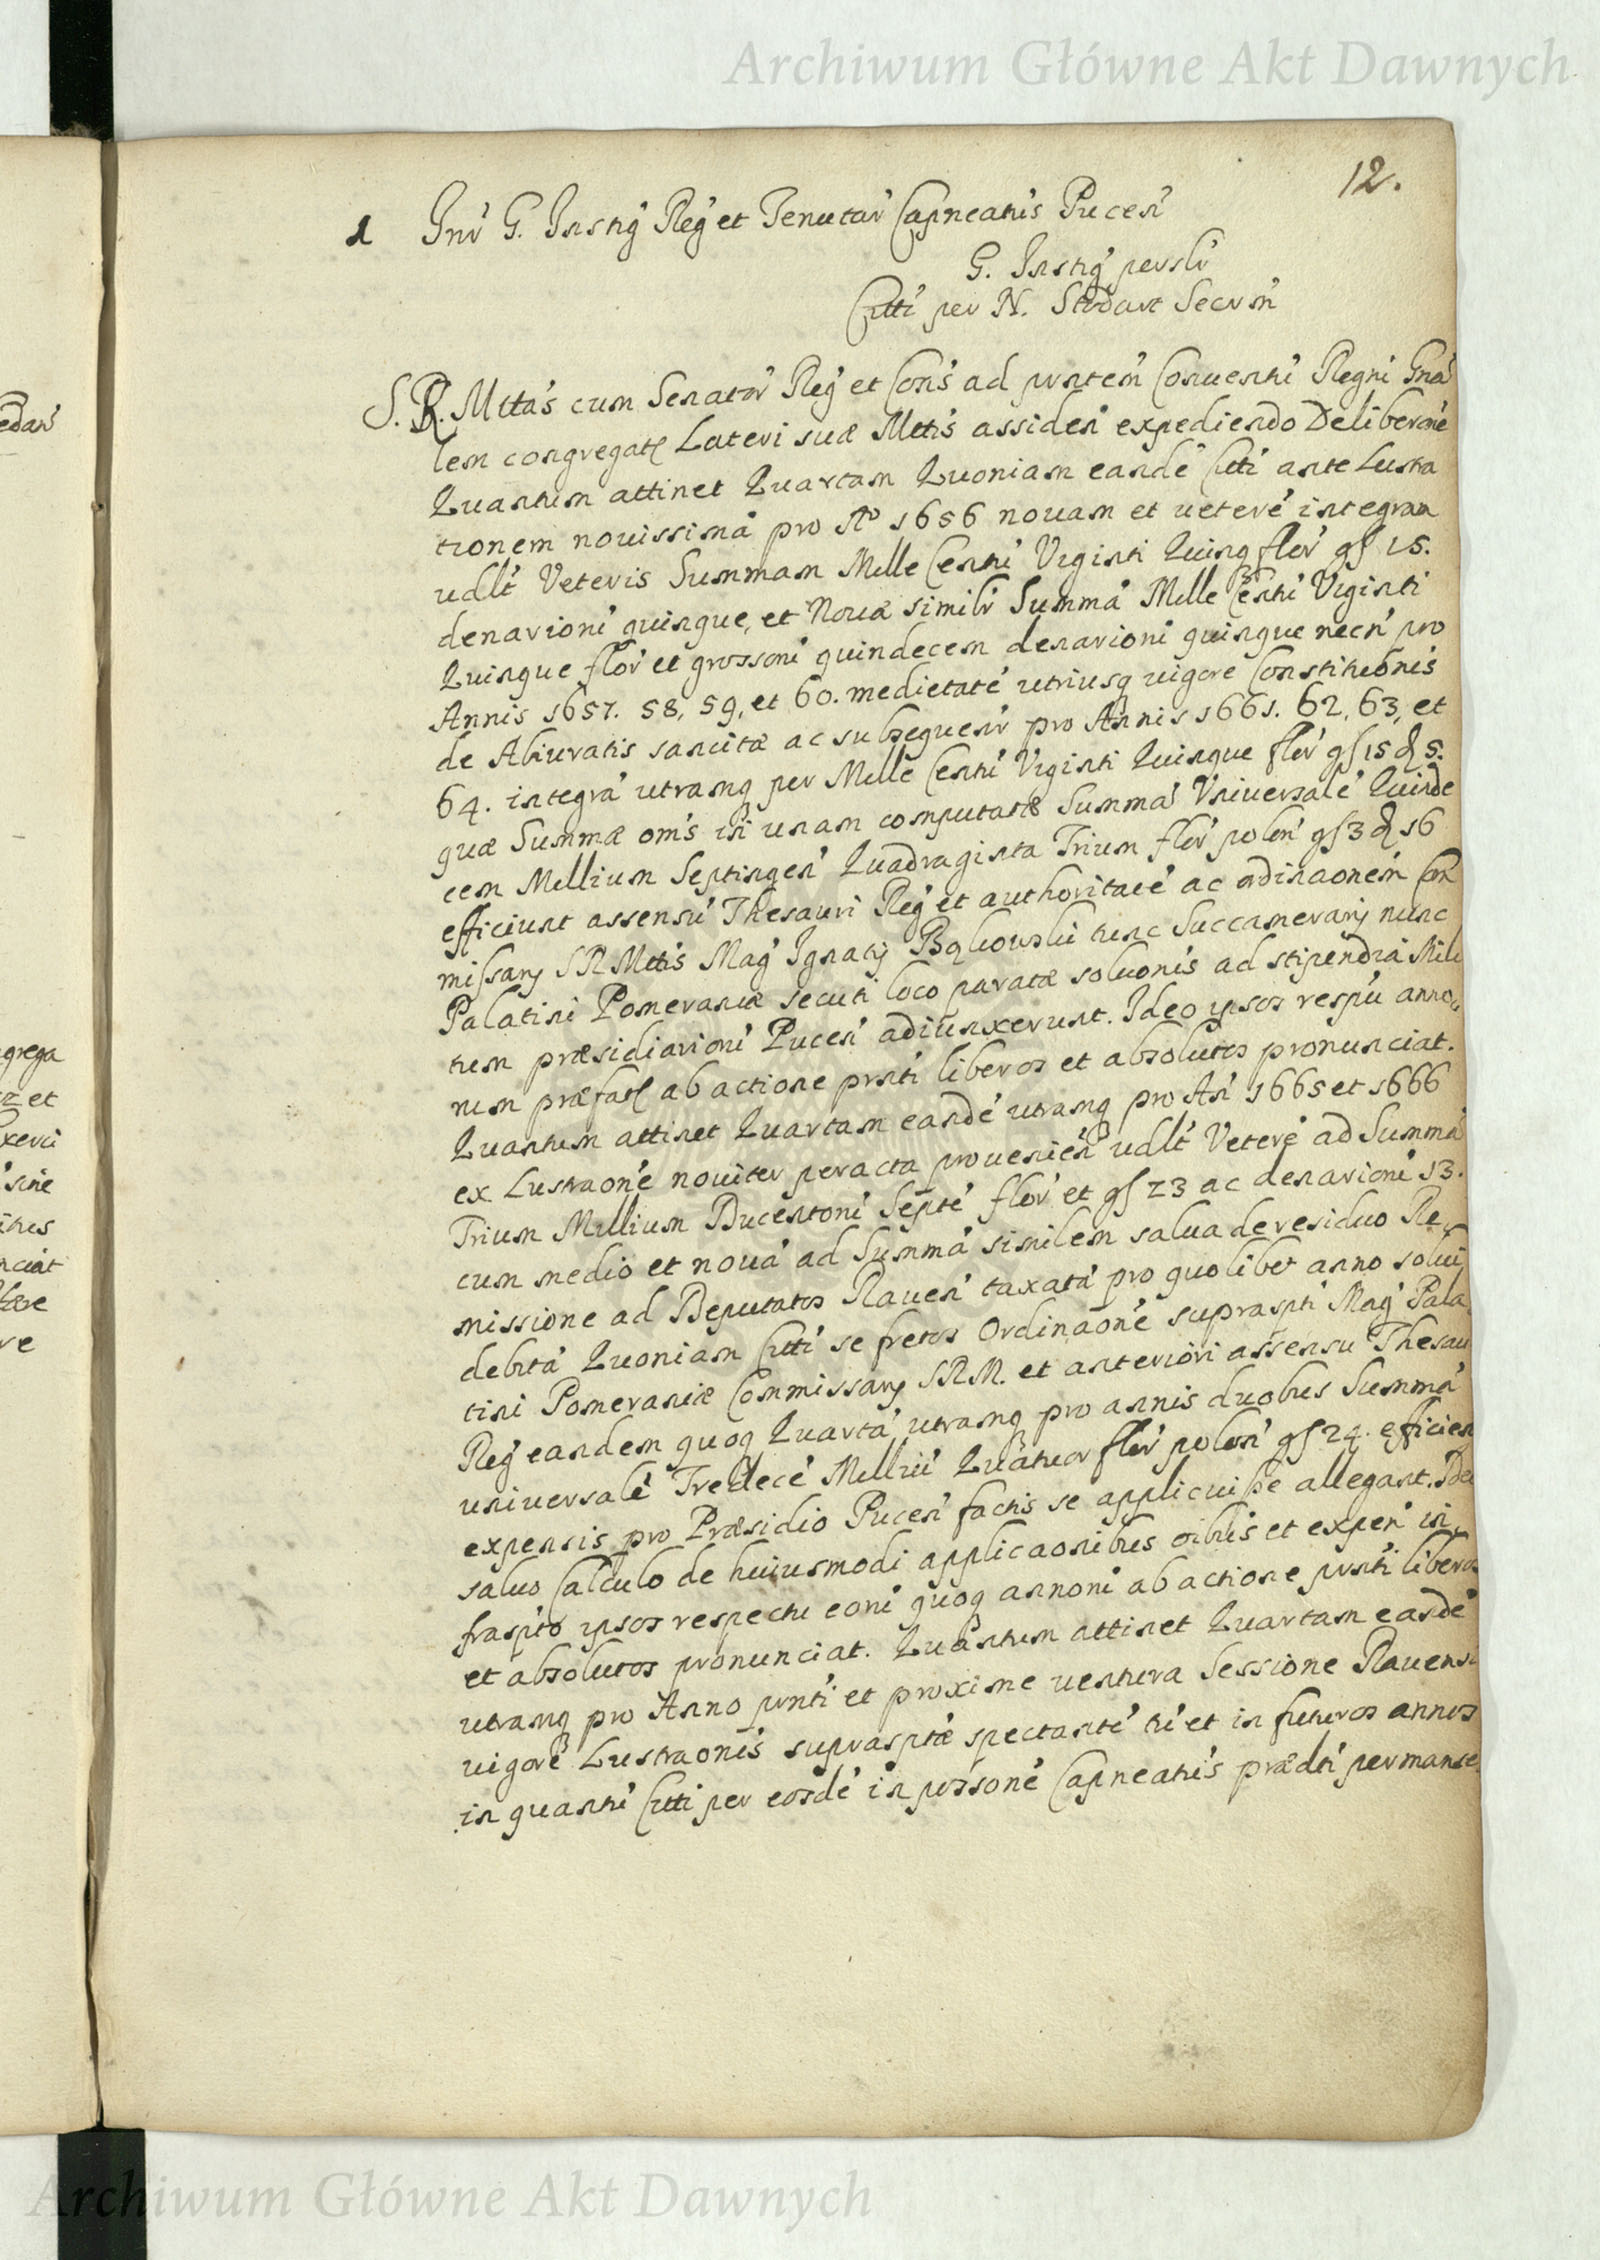 Archiwum Główne Akt Dawnych
12.
1 Inr G. Instig Reg et Tenutar Capneatus Pucen
G. Instig perslr
Citti per N. Stodart Secrm
S. R. Mttas cum Senator Reg et Cons ad pntem Conuentu Regni Gna
lem congregat Lateri suæ Mttis assiden expediendo Deliberone
Quantum attinet Quartam Quoniam eande Citti ante Lustra
tionem nouissima pro Ao 1656 nouam et uetere integram
udlt Veteris Summam Mille Centu Viginti Quinq flor gs 15.
denarioru quinque, et Noua similr Summa Mille Centu Viginti
Quinque flor et grossoru quindecem denarioru quinque necn pro
Annis 1657. 58, 59, et 60. medietate utriusq uigore Constitutionis
de Abiuratis sancitæ ac subsequenr pro Annis 1661. 62, 63, et
64. integra utramq per Mille Centu Viginti Quinque flor gs 15 d 5.
quæ Summæ oms in unam computatæ Summa Vniuersale Quinde
cem Millium Septingen Quadraginta Trium flor polon gs 3 d 16
efficiunt assensu Thesauri Reg et authoritate ac ordinaonem Com
missarij SRMttis Mag Ignatij Bąkowski tunc Succamerarij nunc
Palatini Pomeraniæ secuti loco paratæ soluonis ad stipendia Mili
tum præsidiarioru Pucen adiunxerunt. Ideo ipsos respu anno
rum præfat ab actione pnti liberos et absolutos pronunciat.
Quantum attinet Quartam eande utramq pro An 1665 et 1666
ex Lustraone nouiter peracta prouenien udlt Vetere ad Summa
Trium Millium Ducentoru Septe flor et gs 23 ac denarioru 13.
cum medio et noua ad Summa similem salua de residuo Re
missione ad Deputatos Rauen taxata pro quolibet anno solui
debita Quoniam Citti se fretos Ordinaone supraspti Mag Pala
tini Pomeraniæ Commissarij SRM. et anteriori assensu Thesau
Reg eandem quoq Quarta utramq pro annis duobus Summa
uniuersale Tredece Milliu Quatuor flor polon gs 24. efficien
expensis pro Præsidio Pucen factis se applicuisse allegant. Ideo
saluo Calculo de huiusmodi applicaonibus oibus et expen in
fraspto ipsos respectu eoru quoq annoru ab actione pnti liberos
et absolutos pronunciat. Quantum attinet Quartam eande
utramq pro Anno pnti et proxime uentura Sessione Rauensi
uigore Lustraonis supraspta spectante tu et in futuros annos
in quantu Citti per eosde in possone Capneatus prædti permanse
Archiwum Główne Akt Dawnych